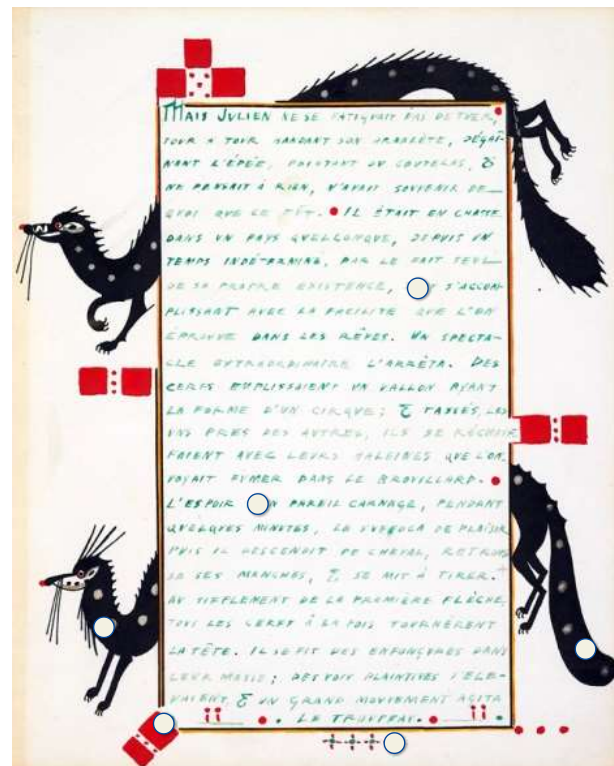 MAIS JULIEN NE SE FATIGUAIT PAS DE TUER,
TOUR A TOUR BANDANT SON ARBALÈTE, DÉGAÎ-
NANT L'ÉPÉE, POINTANT DU COUTELAS, &
NE PENSAIT À RIEN, N'AVAIT SOUVENIR DE
QUOI QUE CE FÛT. IL ÉTAIT EN CHASSE
DANS UN PAYS QUELCONQUE, DEPUIS UN
TEMPS INDÉTERMINÉ, PAR LE FAIT SEUL
DE SA PROPRE EXISTENCE, S'ACCOM-
PLISSANT AVEC LA FACILITÉ QUE L'ON
ÉPROUVE DANS LES RÊVES. UN SPECTA-
CLE EXTRAORDINAIRE L'ARRÊTA. DES
CERFS EMPLISSAIENT UN VALLON AYANT
LA FORME D'UN CIRQUE; & TASSÉS, LES
UNS PRÈS DES AUTRES, ILS SE RÉCHAUF
FAIENT AVEC LEURS HALEINES QUE L'ON
VOYAIT FUMER DANS LE BROUILLARD.
L'ESPOIR PAREIL CARNAGE, PENDANT
QUELQUES MINUTES, LE SUFFOQUA DE PLAISIR
PUIS IL DESCENDIT DE CHEVAL, RETROUS
SA SES MANCHES, & SE MIT À TIRER.
AU SIFFLEMENT DE LA PREMIÈRE FLÈCHE,
TOUS LES CERFS À LA FOIS TOURNÈRENT
LA TÊTE. IL SE FIT DES ENFONÇURES DANS
LEUR MASSE; DES VOIX PLAINTIVES S'ÉLE-
VAIENT, & UN GRAND MOUVEMENT AGITA
LE TROUPEAU.